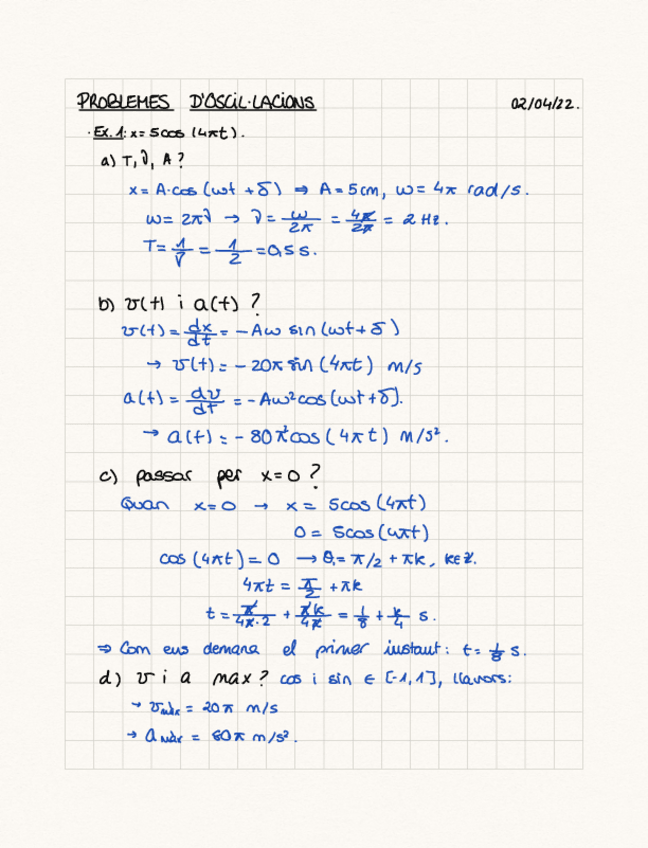 PROBLEMES D'OSCIL·LACIONS 02/04/22.
· Ex. 1: x = 5cos (4πt).
a) T, ν, A?
x = A·cos (ωt + δ) ⇒ A = 5cm, ω = 4π rad/s.
ω = 2πν → ν = ω/2π = 4π/2π = 2 Hz.
T = 1/ν = 1/2 = 0,5 s.
b) v(t) i a(t) ?
v(t) = dx/dt = -Aω sin (ωt + δ)
→ v(t) = -20π sin (4πt) m/s
a(t) = dv/dt = -Aω²cos (ωt + δ).
→ a(t) = -80π²cos (4πt) m/s².
c) passar per x=0 ?
Quan x=0 → x = 5cos (4πt)
0 = 5cos (4πt)
cos (4πt) = 0 → θ = π/2 + πk, k∈ℤ.
4πt = π/2 + πk
t = π/4π·2 + πk/4π = 1/8 + k/4 s.
⇒ Com ens demana el primer instant: t = 1/8 s.
d) v i a max? cos i sin ∈ [-1,1], llavors:
→ vmàx = 20π m/s
→ amàx = 80π m/s².